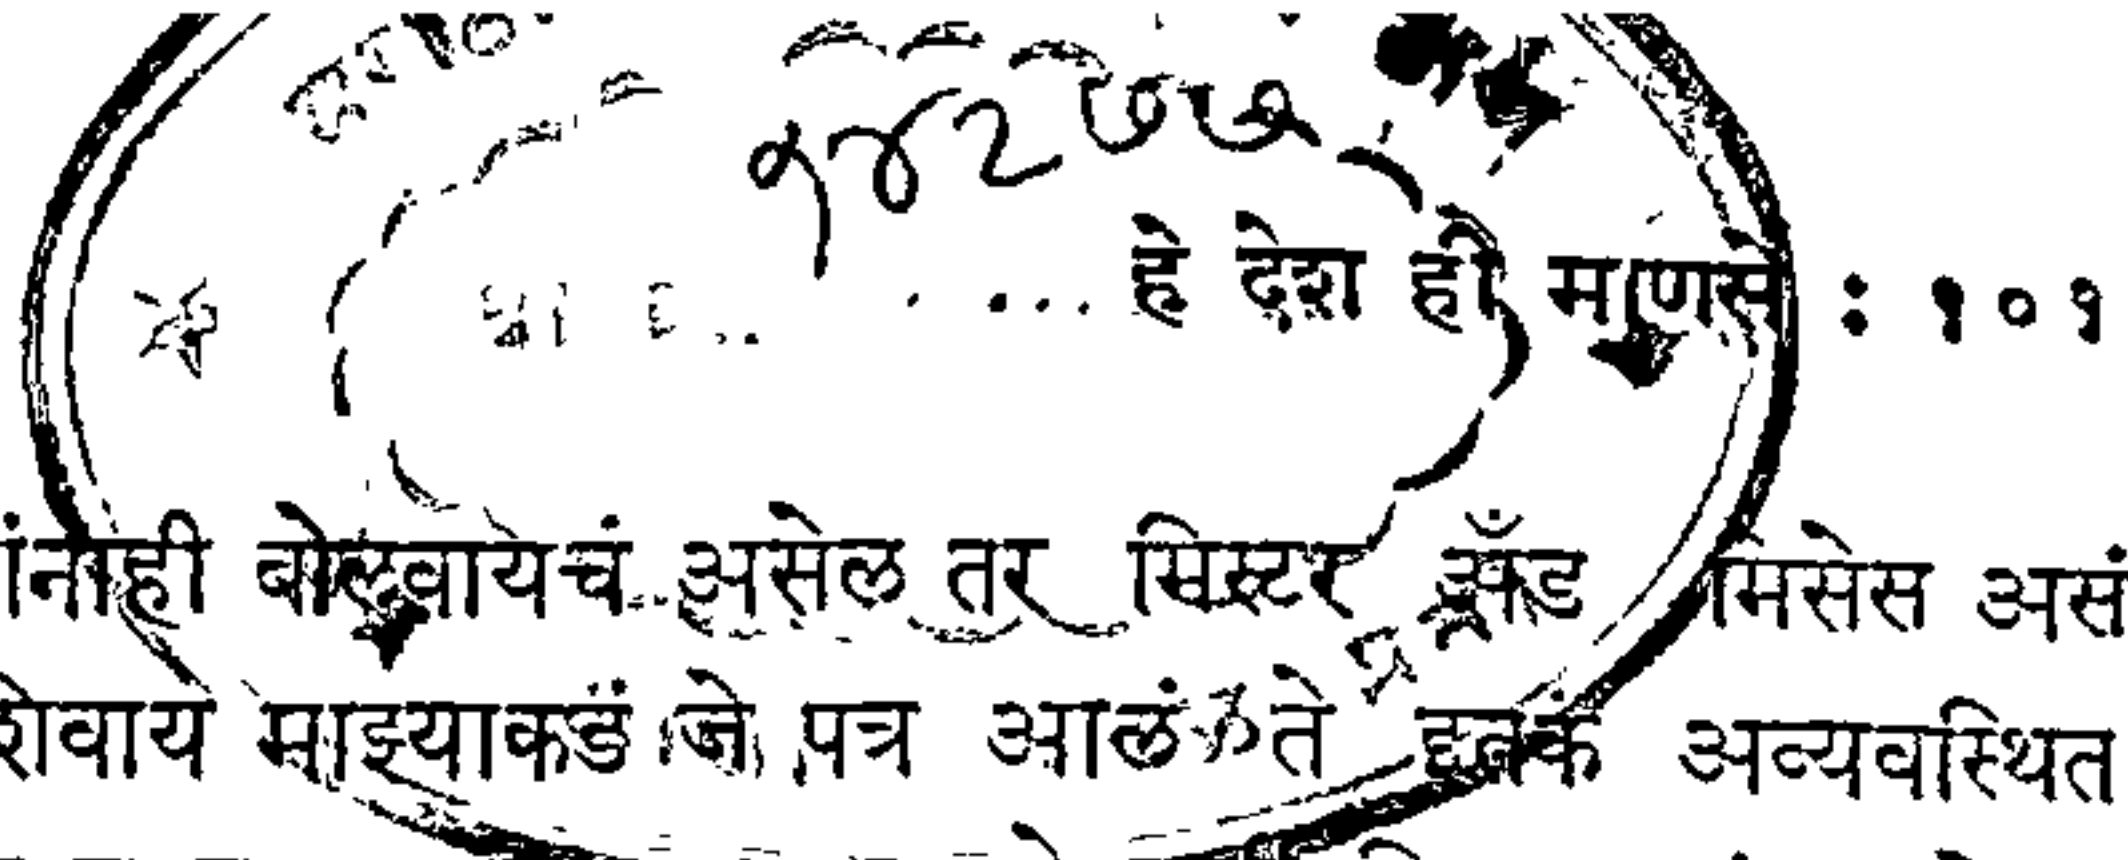 १४२७७
हे देश ही माणसे : १०१
ांनाही बोलवायचं असेल तर मिस्टर अँड मिसेस असं
शेवाय माझ्याकडं जे पत्र आलं ते इतकं अव्यवस्थित